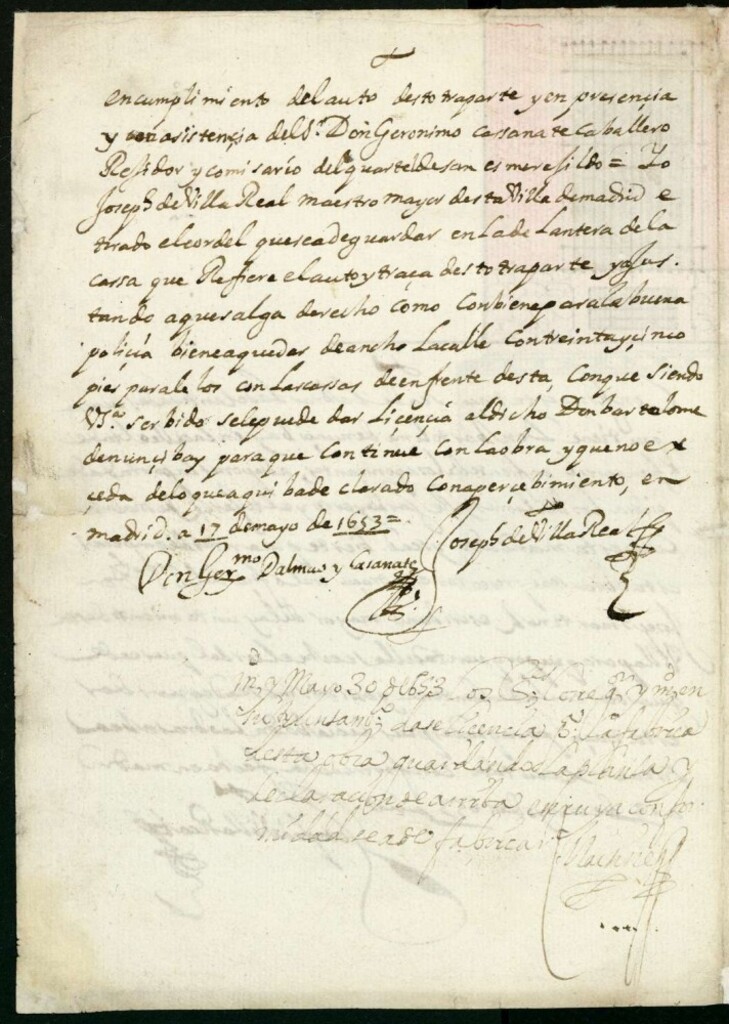 en cumplimiento del auto desto traparte y en presençia
y asistençia del Sr. Don Geronimo cassanate Caballero
Rejidor y comisario del quartel de san ermenesildo = Yo
Joseph de Villa Real maestro mayor desta Villa de madrid e
tirado el cordel que sea de guardar en la delantera de la
cassa que Refiere el auto y traça desto traparte y ajus
tando a que salga derecho como conbiene para la buena
poliçia biene a quedar de ancho La calle con treinta y çinco
pies paralelos con las cassas de enfrente desta, Con que siendo
Vsa. serbido se le puede dar Liçençia al dicho Don bartolome
para que continue con la obra y que no ex
çeda de lo que aqui ba declarado con aperçebimiento, en
madrid. a 17 de mayo de 1653 =
Joseph de Villa Real
Don Germo Dalmao y Casanate
md y Mayo 30 de 1653 los Sres Coregr y
se licencia la fabrica
desta obra guardando la planta y
declaracion de arriba en cuya confor
midad se a de fabricar